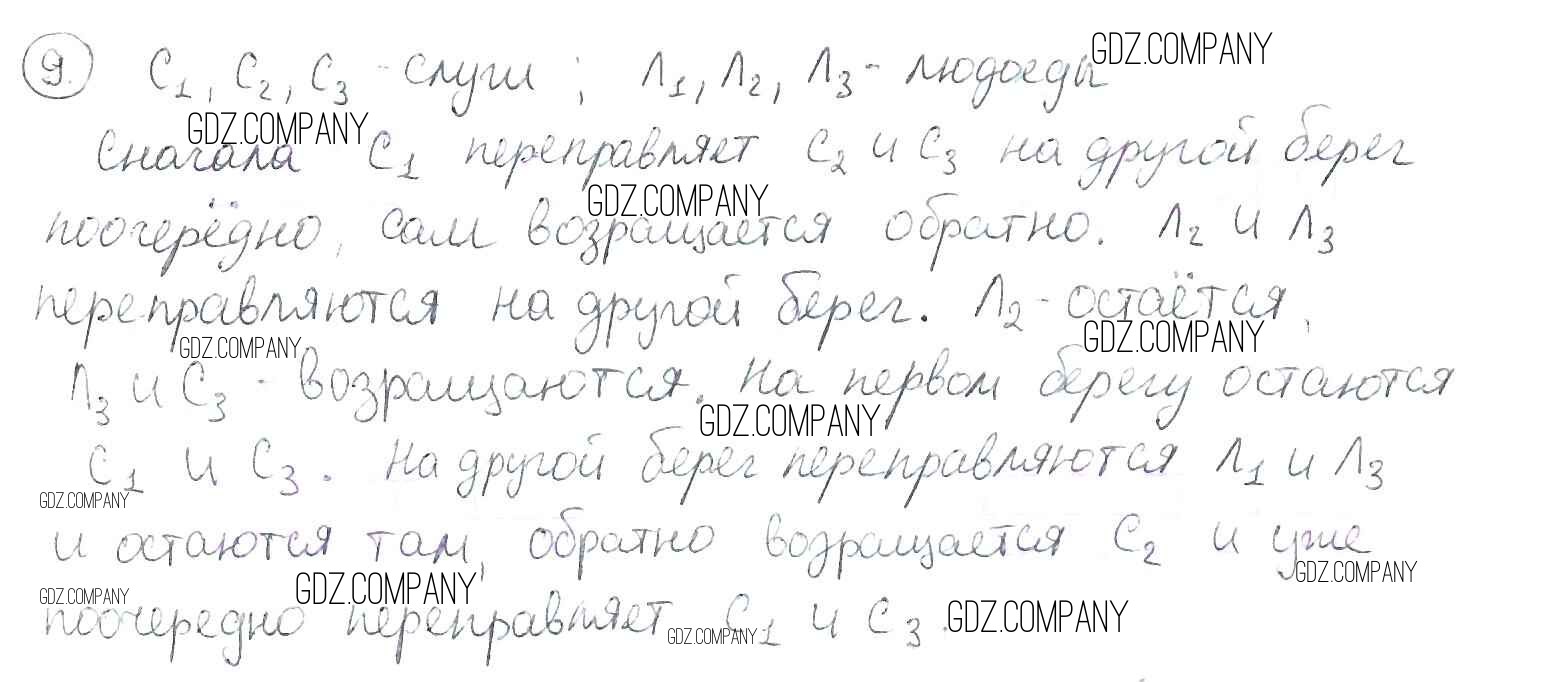 9. С1, С2, С3 - слуги; Л1, Л2, Л3 - людоеды GDZ.COMPANY
GDZ.COMPANY
Сначала С1 переправляет С2 и С3 на другой берег
GDZ.COMPANY
поочерёдно, сам возвращается обратно. Л2 и Л3
переправляются на другой берег. Л2 - остаётся,
GDZ.COMPANY GDZ.COMPANY
Л3 и С3 - возвращаются. На первом берегу остаются
GDZ.COMPANY
С1 и С3. На другой берег переправляются Л1 и Л3
GDZ.COMPANY
и остаются там, обратно возвращается С2 и уже
GDZ.COMPANY GDZ.COMPANY GDZ.COMPANY
поочередно переправляет С1 и С3. GDZ.COMPANY
GDZ.COMPANY